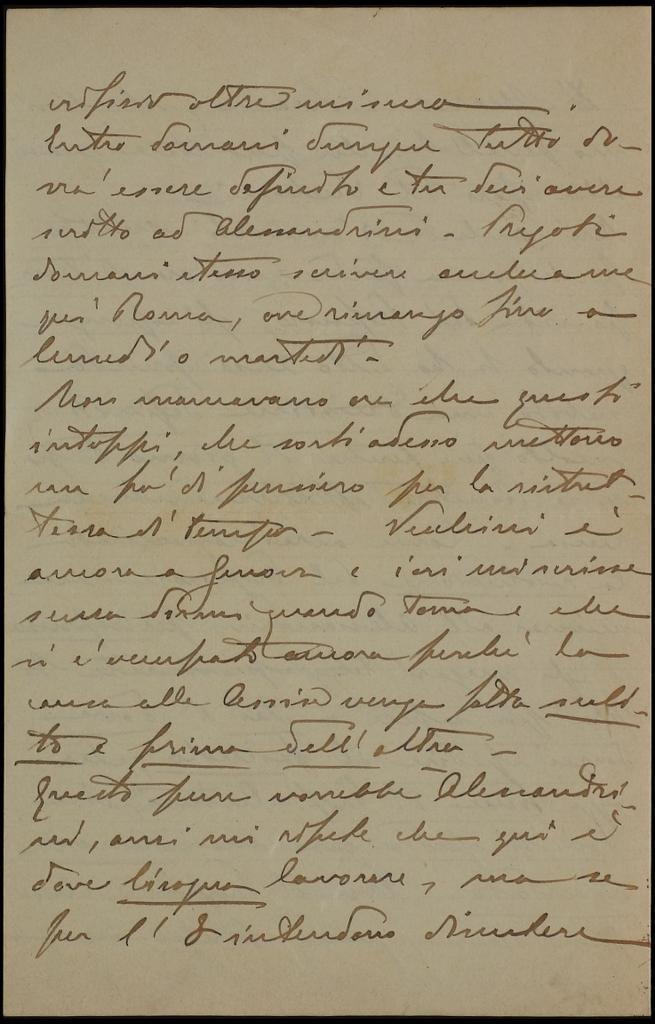 oltre misura
Entro domani dunque tutto do-
vrà essere definito e tu devi avere
scritto ad Alessandrini - Pregoti
domani stesso scrivere anche a me
per Roma, ove rimango fino a
lunedì o martedì -
Non mancavano ora che questi
intoppi, che sorti adesso mettono
un po' di pensiero per la ristret-
tezza di tempo - Vecchini è
ancora a Genova e ieri mi scrisse
senza dirmi quando torna e che
si è occupato ancora perché la
causa alle Assise venga fatta subi-
to e prima dell'altra -
Questo pure vorrebbe Alessandri-
ni, anzi mi ripete che qui è
dove bisogna lavorare, ma se
per l' 8 intendono discutere